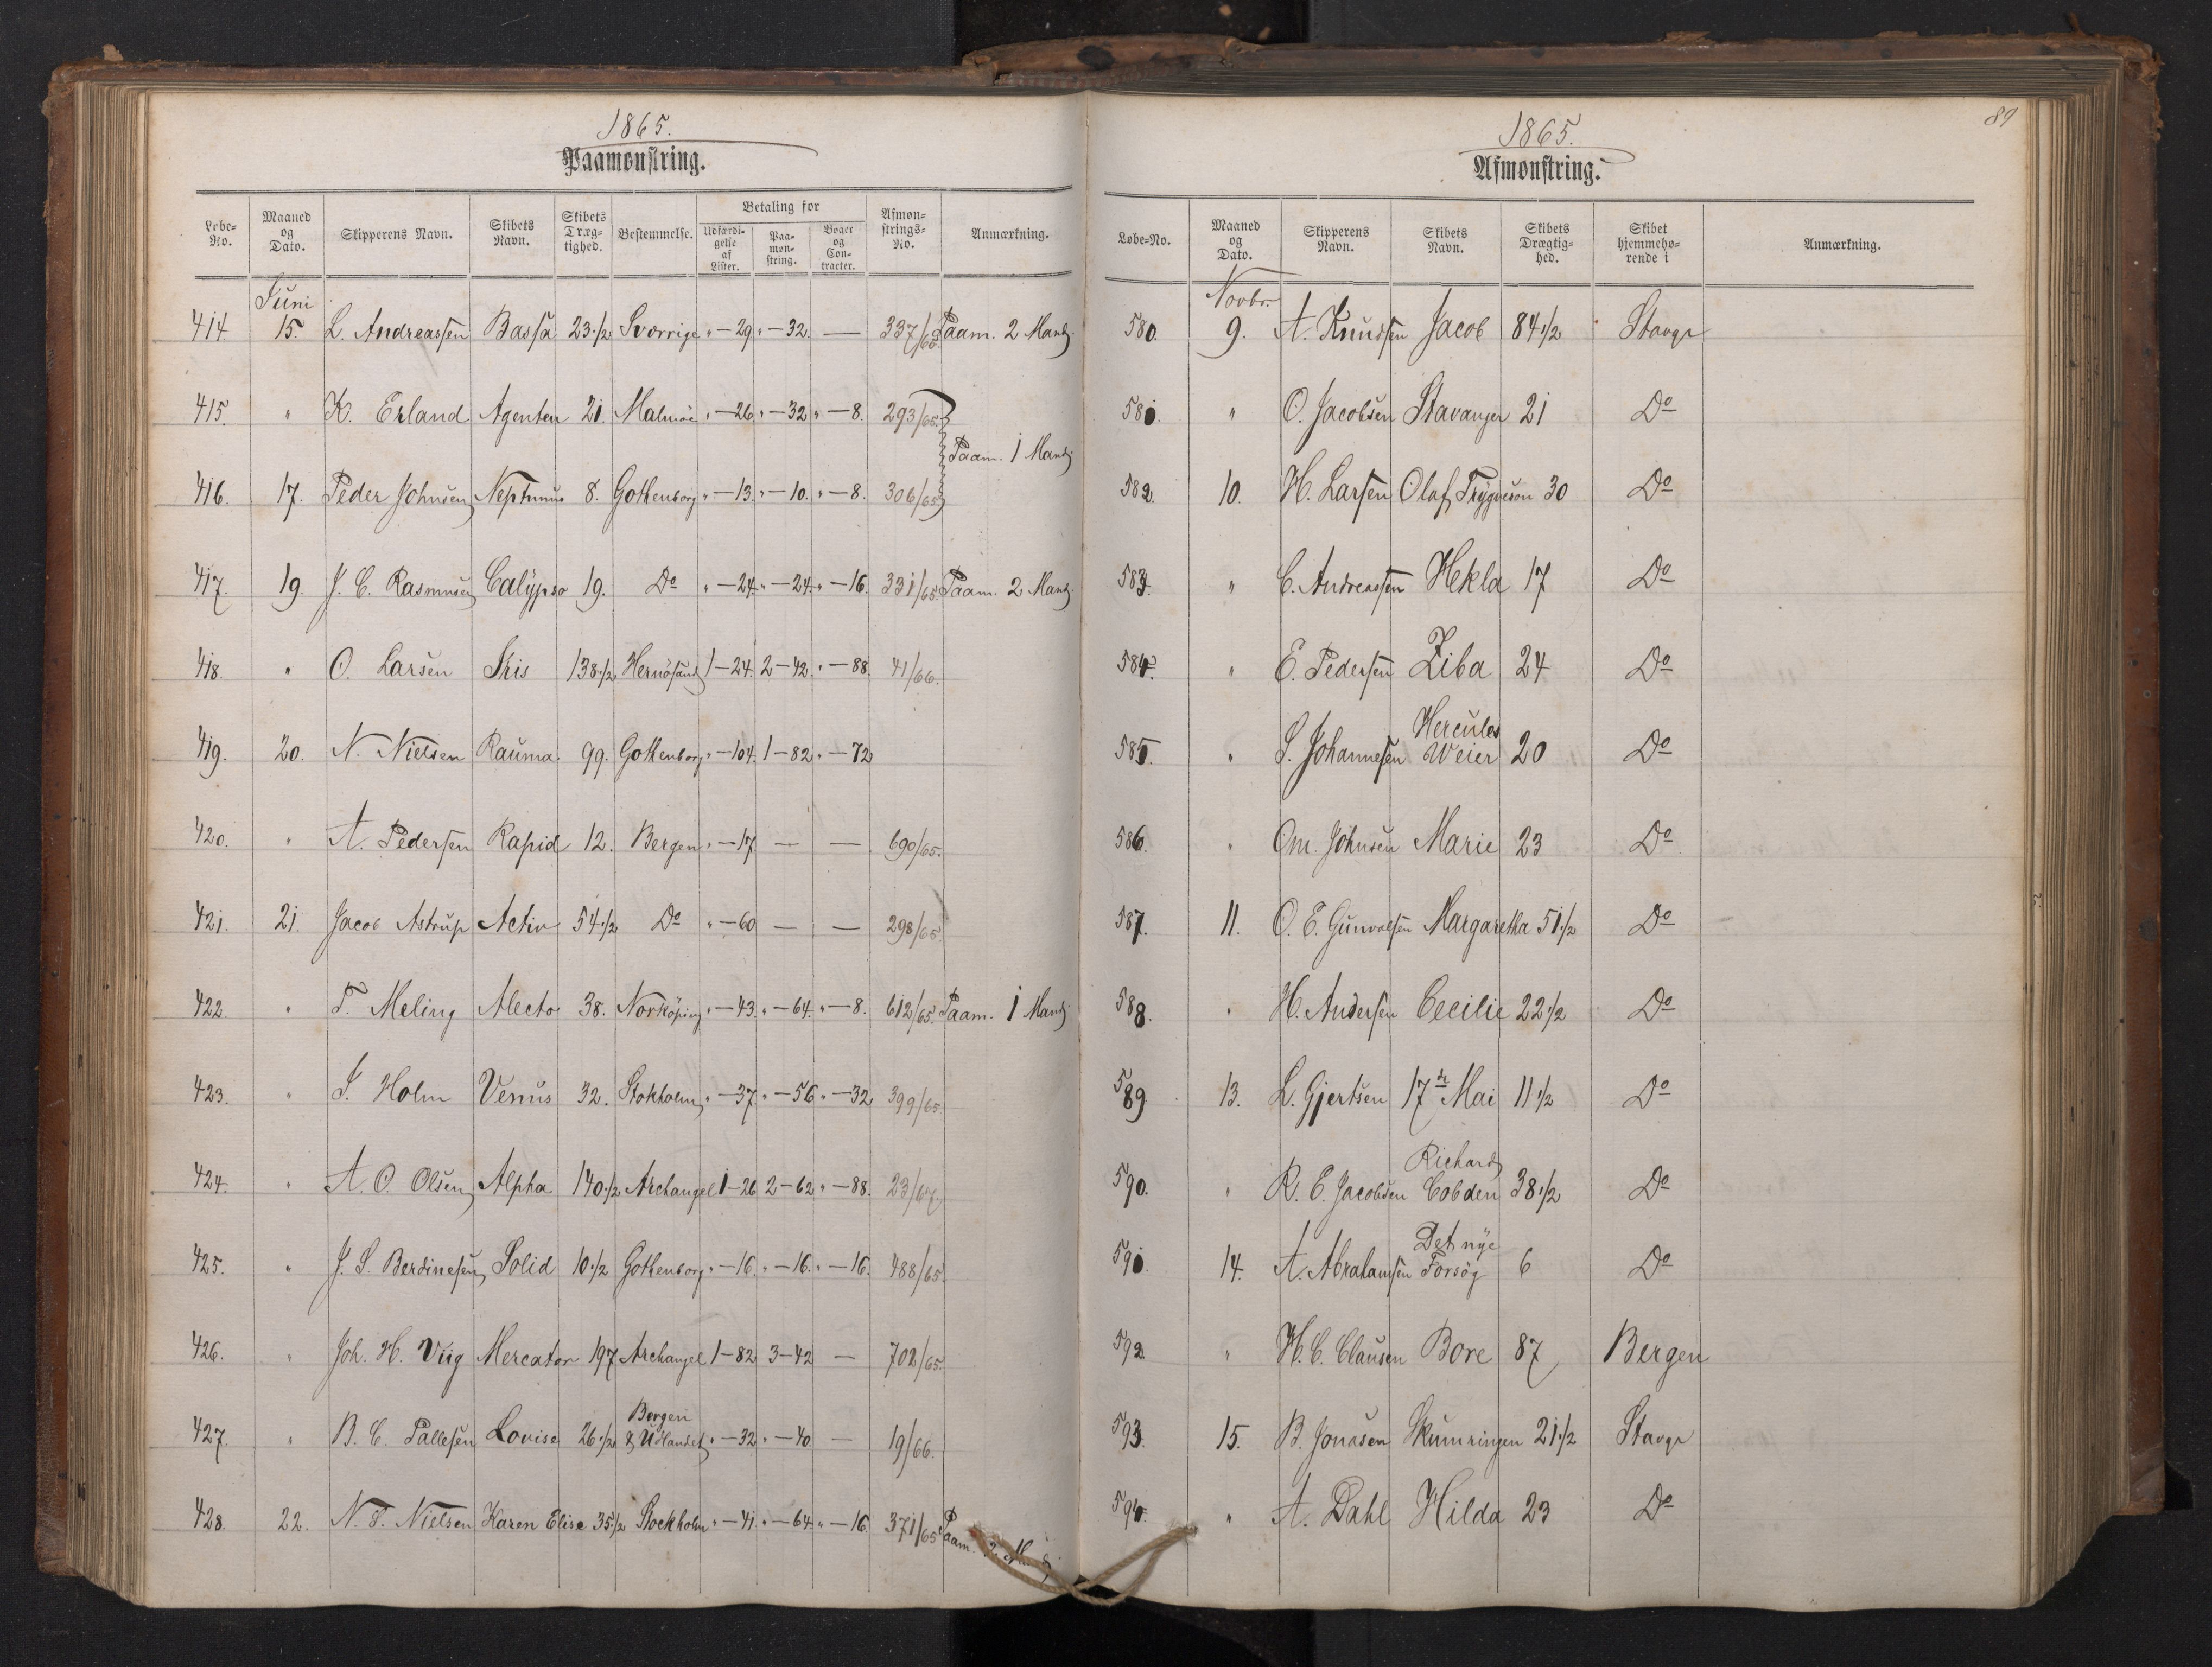 1865.
Paamønstring.
Løbe-No. Maaned og Dato. Skipperens Navn. Skibets Navn. Skibets Dræg-tighed. Bestemmelse. Betaling for Udfærdi-gelse af Lister. Paa-møn-string. Bøger og Con-tracter. Afmøn-strings-No. Anmærkning.
Juni
414. 15. L. Andreassen Bassa 23 1/2 Sverrige " - 29 " - 32 — 337/65. Paam. 2 Mand.
415. " K. Erland Agenten 21. Malmöe " - 26 " - 32 " - 8. 293/65.
Paam. 1 Mand
416. 17. Peder Johnsen Neptunus 8. Gothenborg " - 13. " - 10. " - 8. 306/65
417. 19. J. C. Rasmusen Calypso 19. Do " - 24. " - 24. " - 16. 331/65. Paam. 2 Mand.
418. " O. Larsen Iris 138 1/2 Hernösand 1 - 24. 2 - 42. " - 88. 41/66.
419. 20. N. Nielsen Rauma. 99. Gothenborg " - 104. 1 - 82. " - 72
420. " A. Pedersen Rapid 12. Bergen. " - 17 — — 690/65.
421. 21. Jacob Astrup Activ 54 1/2 Do " - 60 — — 298/65.
422. " T. Meling Alecto 38. Norköping " - 43. " - 64. " - 8. 612/65. Paam. 1 Mand
423. " I. Holm Venus 32. Stokholm " - 37 " - 56 " - 32 399/65
424. " A. O. Olsen Alpha 140 1/2 Archangel 1 - 26 2 - 62 " - 88. 23/67
425. " J. S. Berdinesen Solid 10 1/2 Gothenborg " - 16. " - 16. " - 16. 488/65.
426. " Joh. H. Viig Mercator 197 Archangel 1 - 82 3 - 42 — 702/65.
427. " B. C. Pallesen Lovise 26 1/2 Bergen & Udlandet " - 32 " - 40. — 19/66.
428. 22. N. T. Nielsen Karen Elise 35 1/2 Stockholm " - 41. " - 64. " - 16. 371/65 Paam. 2 Mand
89
1865.
Afmønstring.
Løbe-No. Maaned og Dato. Skipperens Navn. Skibets Navn. Skibets Drægtig-hed. Skibet hjemmehø-rende i Anmærkning.
Novbr.
580. 9. A. Knudsen Jacob 84 1/2 Stavgr
581. " O. Jacobsen Stavanger 21 Do
582. 10. H. Larsen Olaf Trygveson 30 Do
583. " C. Andreassen Hekla 17 Do
584. " E. Pedersen Ziba 24 Do
585. " S. Johannesen Hercules Weier 20 Do
586. " Om. Johnsen Marie 23 Do
587. 11. O. E. Gunvalsen Margaretha 51 1/2 Do
588. " H. Andersen Cecilie 22 1/2 Do
589 13. L. Gjertsen 17de Mai 11 1/2 Do
590. " R. E. Jacobsen Richard Cobden 38 1/2 Do
591. 14. A. Abrahamsen Det nye Forsøg 6 Do
592 " H. C. Clausen Bore 87 Bergen
593. 15. B. Jonasen Skumringen 21 1/2 Stavgr
594. " A. Dahl Hilda 23 Do